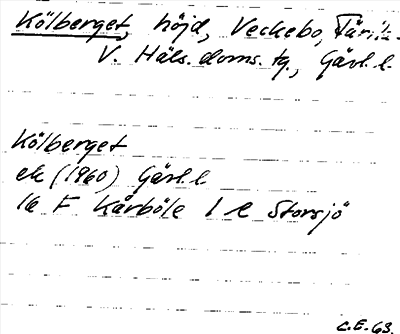 Kölberget, höjd, Veckebo, Färila
V. Häls. doms. tg., Gävl. l.
Kölberget
ek (1960) Gävl. l
16 F Kårböle 1 e Storsjö
C.E. 63.